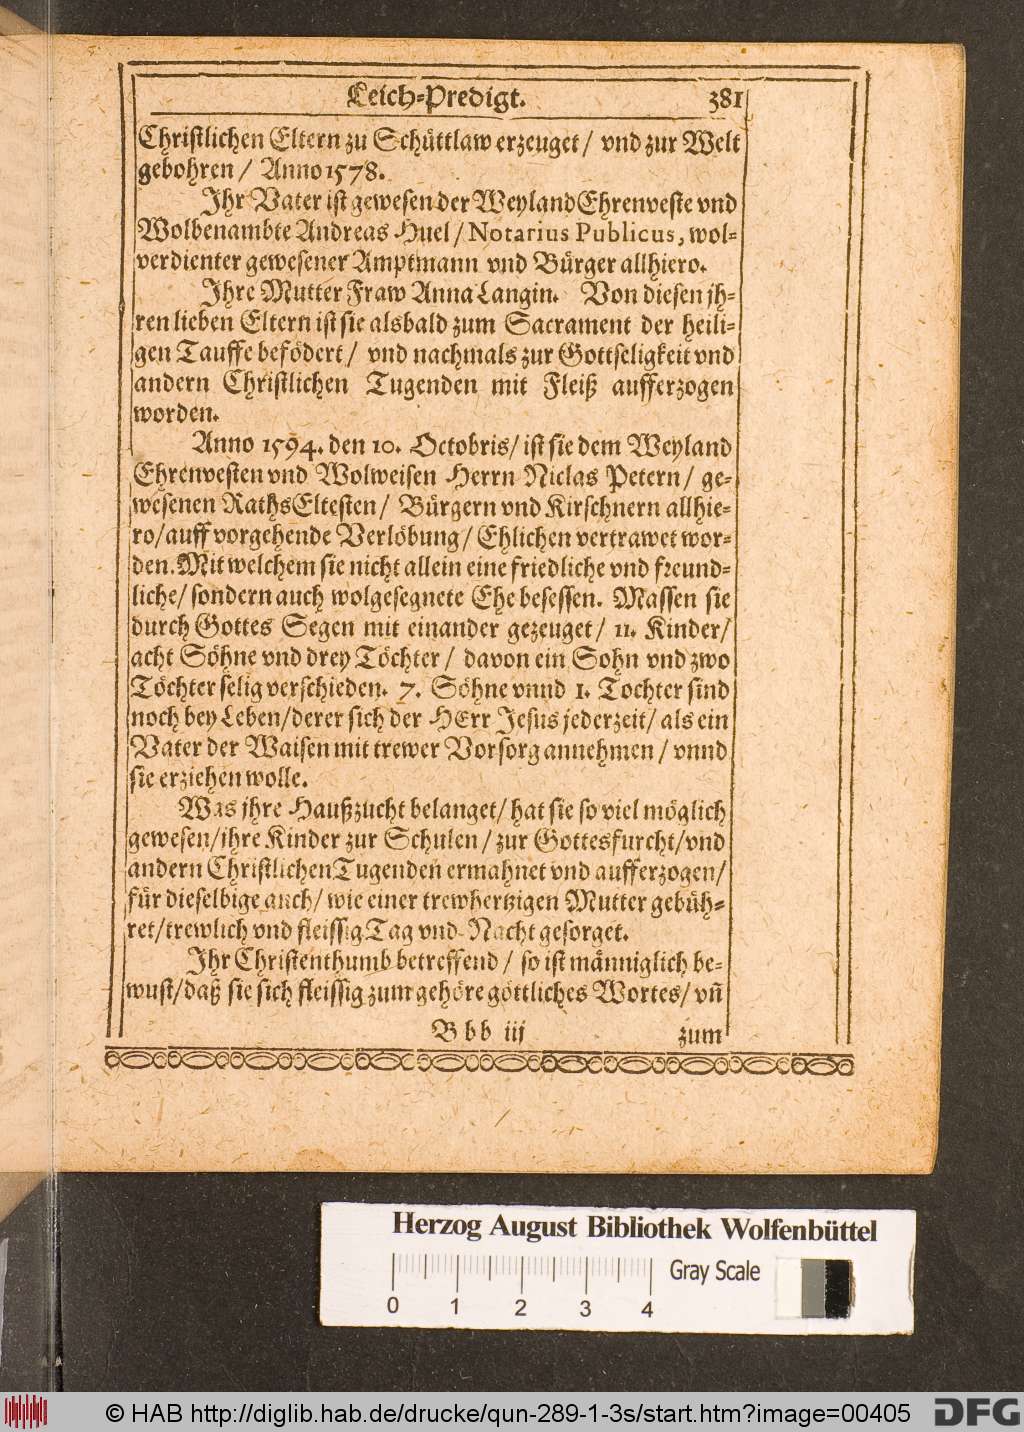 Leich-Predigt. 381
Christlichen Eltern zu Schüttlaw erzeuget / vnd zur Welt
gebohren / Anno 1578.
Ihr Vater ist gewesen der Weyland Ehrenveste vnd
Wolbenambte Andreas Huel / Notarius Publicus, wol-
verdienter gewesener Amptmann vnd Bürger allhiero.
Ihre Mutter Fraw Anna Langin. Von diesen jh-
ren lieben Eltern ist sie alsbald zum Sacrament der heili-
gen Tauffe befödert / vnd nachmals zur Gottseligkeit vnd
andern Christlichen Tugenden mit Fleiß aufferzogen
worden.
Anno 1594. den 10. Octobris / ist sie dem Weyland
Ehrenvesten vnd Wolweisen Herrn Niclas Petern / ge-
wesenen Raths Eltesten / Bürgern vnd Kirschnern allhie-
ro / auff vorgehende Verlöbung / Ehlichen vertrawet wor-
den. Mit welchem sie nicht allein eine friedliche vnd freund-
liche / sondern auch wolgesegnete Ehe besessen. Massen sie
durch Gottes Segen mit einander gezeuget / 11. Kinder /
acht Söhne vnd drey Töchter / davon ein Sohn vnd zwo
Töchter selig verschieden. 7. Söhne vnnd 1. Tochter sind
noch bey Leben / derer sich der HErr Jesus jederzeit / als ein
Vater der Waisen mit trewer Vorsorg annehmen / vnnd
sie erziehen wolle.
Was jhre Haußzucht belanget / hat sie so viel möglich
gewesen / jhre Kinder zur Schulen / zur Gottesfurcht / vnd
andern Christlichen Tugenden ermahnet vnd aufferzogen /
für dieselbige auch / wie einer trewhertzigen Mutter gebüh-
ret / trewlich vnd fleissig Tag vnd Nacht gesorget.
Ihr Christenthumb betreffend / so ist männiglich be-
wust / daß sie sich fleissig zum gehöre göttliches Wortes / vñ
B b b iij zum
Herzog August Bibliothek Wolfenbüttel
Gray Scale
0 1 2 3 4
© HAB http://diglib.hab.de/drucke/qun-289-1-3s/start.htm?image=00405 DFG